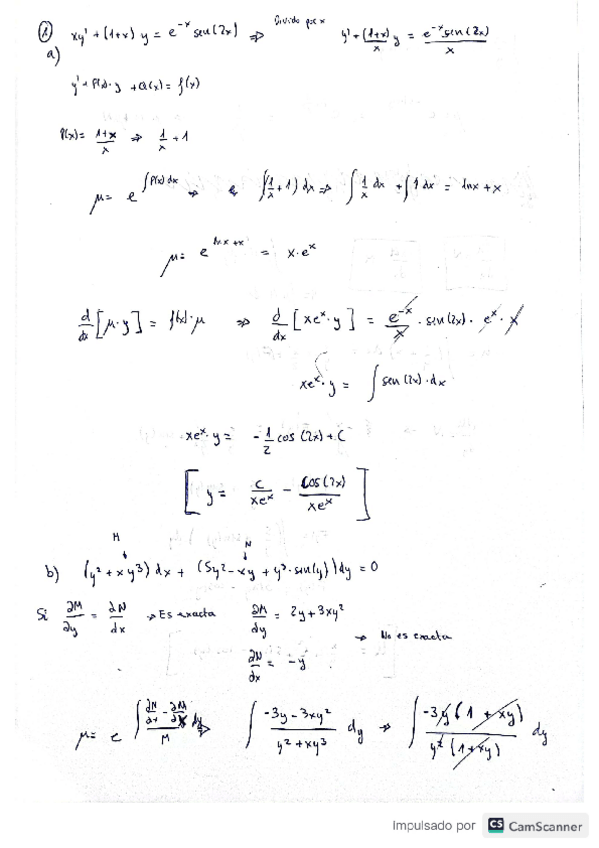 ② xy' + (1+x) y = e^{-x} sen(2x) ⇒ Divido por x y' + \frac{(1+x)}{x} y = \frac{e^{-x} sen(2x)}{x}
a)
y' + P(x)·y + Q(x) = f(x)
P(x) = \frac{1+x}{x} ⇒ \frac{1}{x} + 1
μ = e^{∫P(x) dx} ⇒ e ∫(\frac{1}{x} + 1) dx ⇒ ∫\frac{1}{x} dx + ∫1 dx = lnx + x
μ = e^{lnx + x} = x·e^x
\frac{d}{dx}[μ·y] = f(x)·μ ⇒ \frac{d}{dx}[xe^x·y] = \frac{e^{-x}}{x}·sen(2x)·e^x·x
xe^x·y = ∫sen(2x)·dx
xe^x·y = -\frac{1}{2} cos(2x) + C
[y = \frac{C}{xe^x} - \frac{cos(2x)}{xe^x}]
M N
b) (y² + xy³) dx + (5y² - xy + y³·sin(y)) dy = 0
Si \frac{∂M}{∂y} = \frac{∂N}{dx} → Es exacta \frac{∂M}{dy} = 2y + 3xy²
→ No es exacta
\frac{∂N}{dx} = -y
μ = e^{∫\frac{\frac{∂N}{dx} - \frac{∂M}{dy}}{M} dy} ⇒ ∫\frac{-3y - 3xy²}{y² + xy³} dy ⇒ ∫\frac{-3y(1 + xy)}{y²(1 + xy)} dy
Impulsado por CS CamScanner